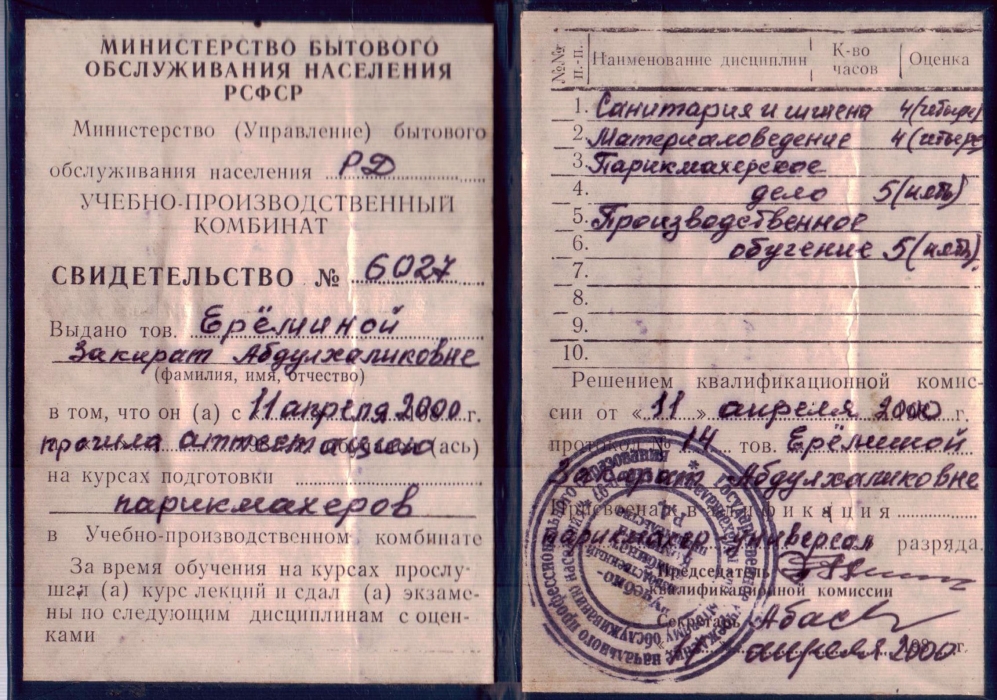 МИНИСТЕРСТВО БЫТОВОГО
ОБСЛУЖИВАНИЯ НАСЕЛЕНИЯ
РСФСР
Министерство (Управление) бытового
обслуживания населения РД
УЧЕБНО-ПРОИЗВОДСТВЕННЫЙ
КОМБИНАТ
СВИДЕТЕЛЬСТВО № 6027
Выдано тов. Ерёминой
Закират Абдулхаликовне
(фамилия, имя, отчество)
в том, что он (а) с 11 апреля 2000 г.
прошла аттестацию (ась)
на курсах подготовки
парикмахеров
в Учебно-производственном комбинате
За время обучения на курсах прослу-
шал (а) курс лекций и сдал (а) экзаме-
ны по следующим дисциплинам с оцен-
ками
№№ п.-п. Наименование дисциплин К-во часов Оценка
1. Санитария и гигиена 4 (четыре)
2. Материаловедение 4 (четыре)
3. Парикмахерское
4. дело 5 (пять)
5. Производственное
6. обучение 5 (пять)
7.
8.
9.
10.
Решением квалификационной комис-
сии от «11» апреля 2000 г.
протокол № 14 тов. Ерёминой
Закират Абдулхаликовне
Присвоена квалификация
парикмахер универсал разряда.
Председатель
квалификационной комиссии
Секретарь
апреля 2000 г.